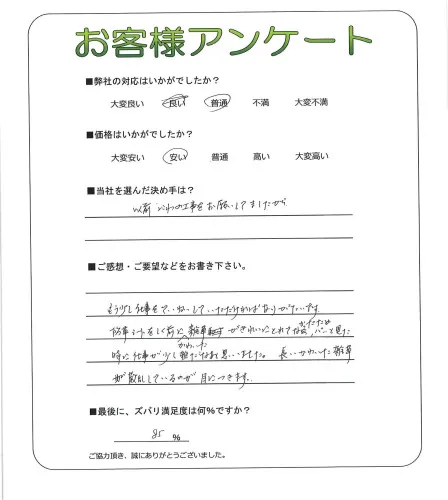 お客様アンケート
■弊社の対応はいかがでしたか?
大変良い 良い 普通 不満 大変不満
■価格はいかがでしたか?
大変安い 安い 普通 高い 大変高い
■当社を選んだ決め手は?
以前 の工事をお願いしてましたから
■ご感想・ご要望などをお書き下さい。
もう少し仕事をていねいしていただければありがたいです。
防草シートをしく前に雑草 がきれいにとれてなかったため パーと見た
かれいた
時に仕事が少し雑だなあと思いました。 長い 雑草
が散乱しているのが目につきます。
■最後に、ズバリ満足度は何%ですか?
85 %
ご協力頂き、誠にありがとうございました。